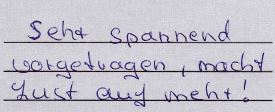 Sehr spannend
vorgetragen, macht
Lust auf mehr!